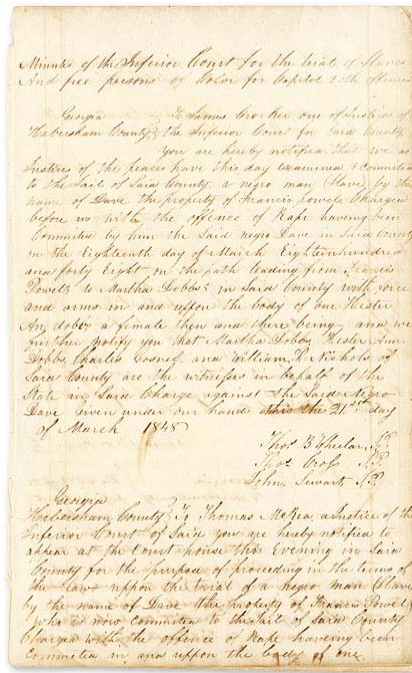 Minutes of the Inferior Court for the trial of Slaves
And free persons of Color for Capitol
Georgia To James Crocker one of Justices of
Habersham County the Inferior Court for said County
You are hereby notified that we as
Justices of the peace have this day examined & Commited
to the Jail of Said County a negro man (Slave) by the
name of Dave the property of Francis Powell Charged
before us with the offence of Rape haveing been
Commited by him the Said negro Dave in Said County
on the Eighteenth day of March Eighteenhundred
and forty Eight on the path leading from Francis
Powells to Martha Dobbs in Said County with force
and arms in and uppon the body of one Hester
An dobbs a female then and there being and we
further notify you that Martha Dobbs Hester Ann
Dobbs Charles and William R Nichols of
Said County are the witnesses in behalf of the
State in Said Charge against the Said Negro
Dave Given under our hands this the 21st day
of March 1848
Thos B Wheelar, J.P.
Thos Cross J.P.
John Stewart J.P.
Georgia
Habersham County To Thomas McKea, a Justice of the
Inferior Court of Said you are hereby notified to
appear at the Court house this Evening in Said
County for the purpose of proceeding in the terms of
the law uppon the trial of a negro man (Slave
by the name of Dave the property of Francis Powell
who is now commited to the Jail of Said County
Charged with the offence of Rape haveing been
Commited in and uppon the body of one